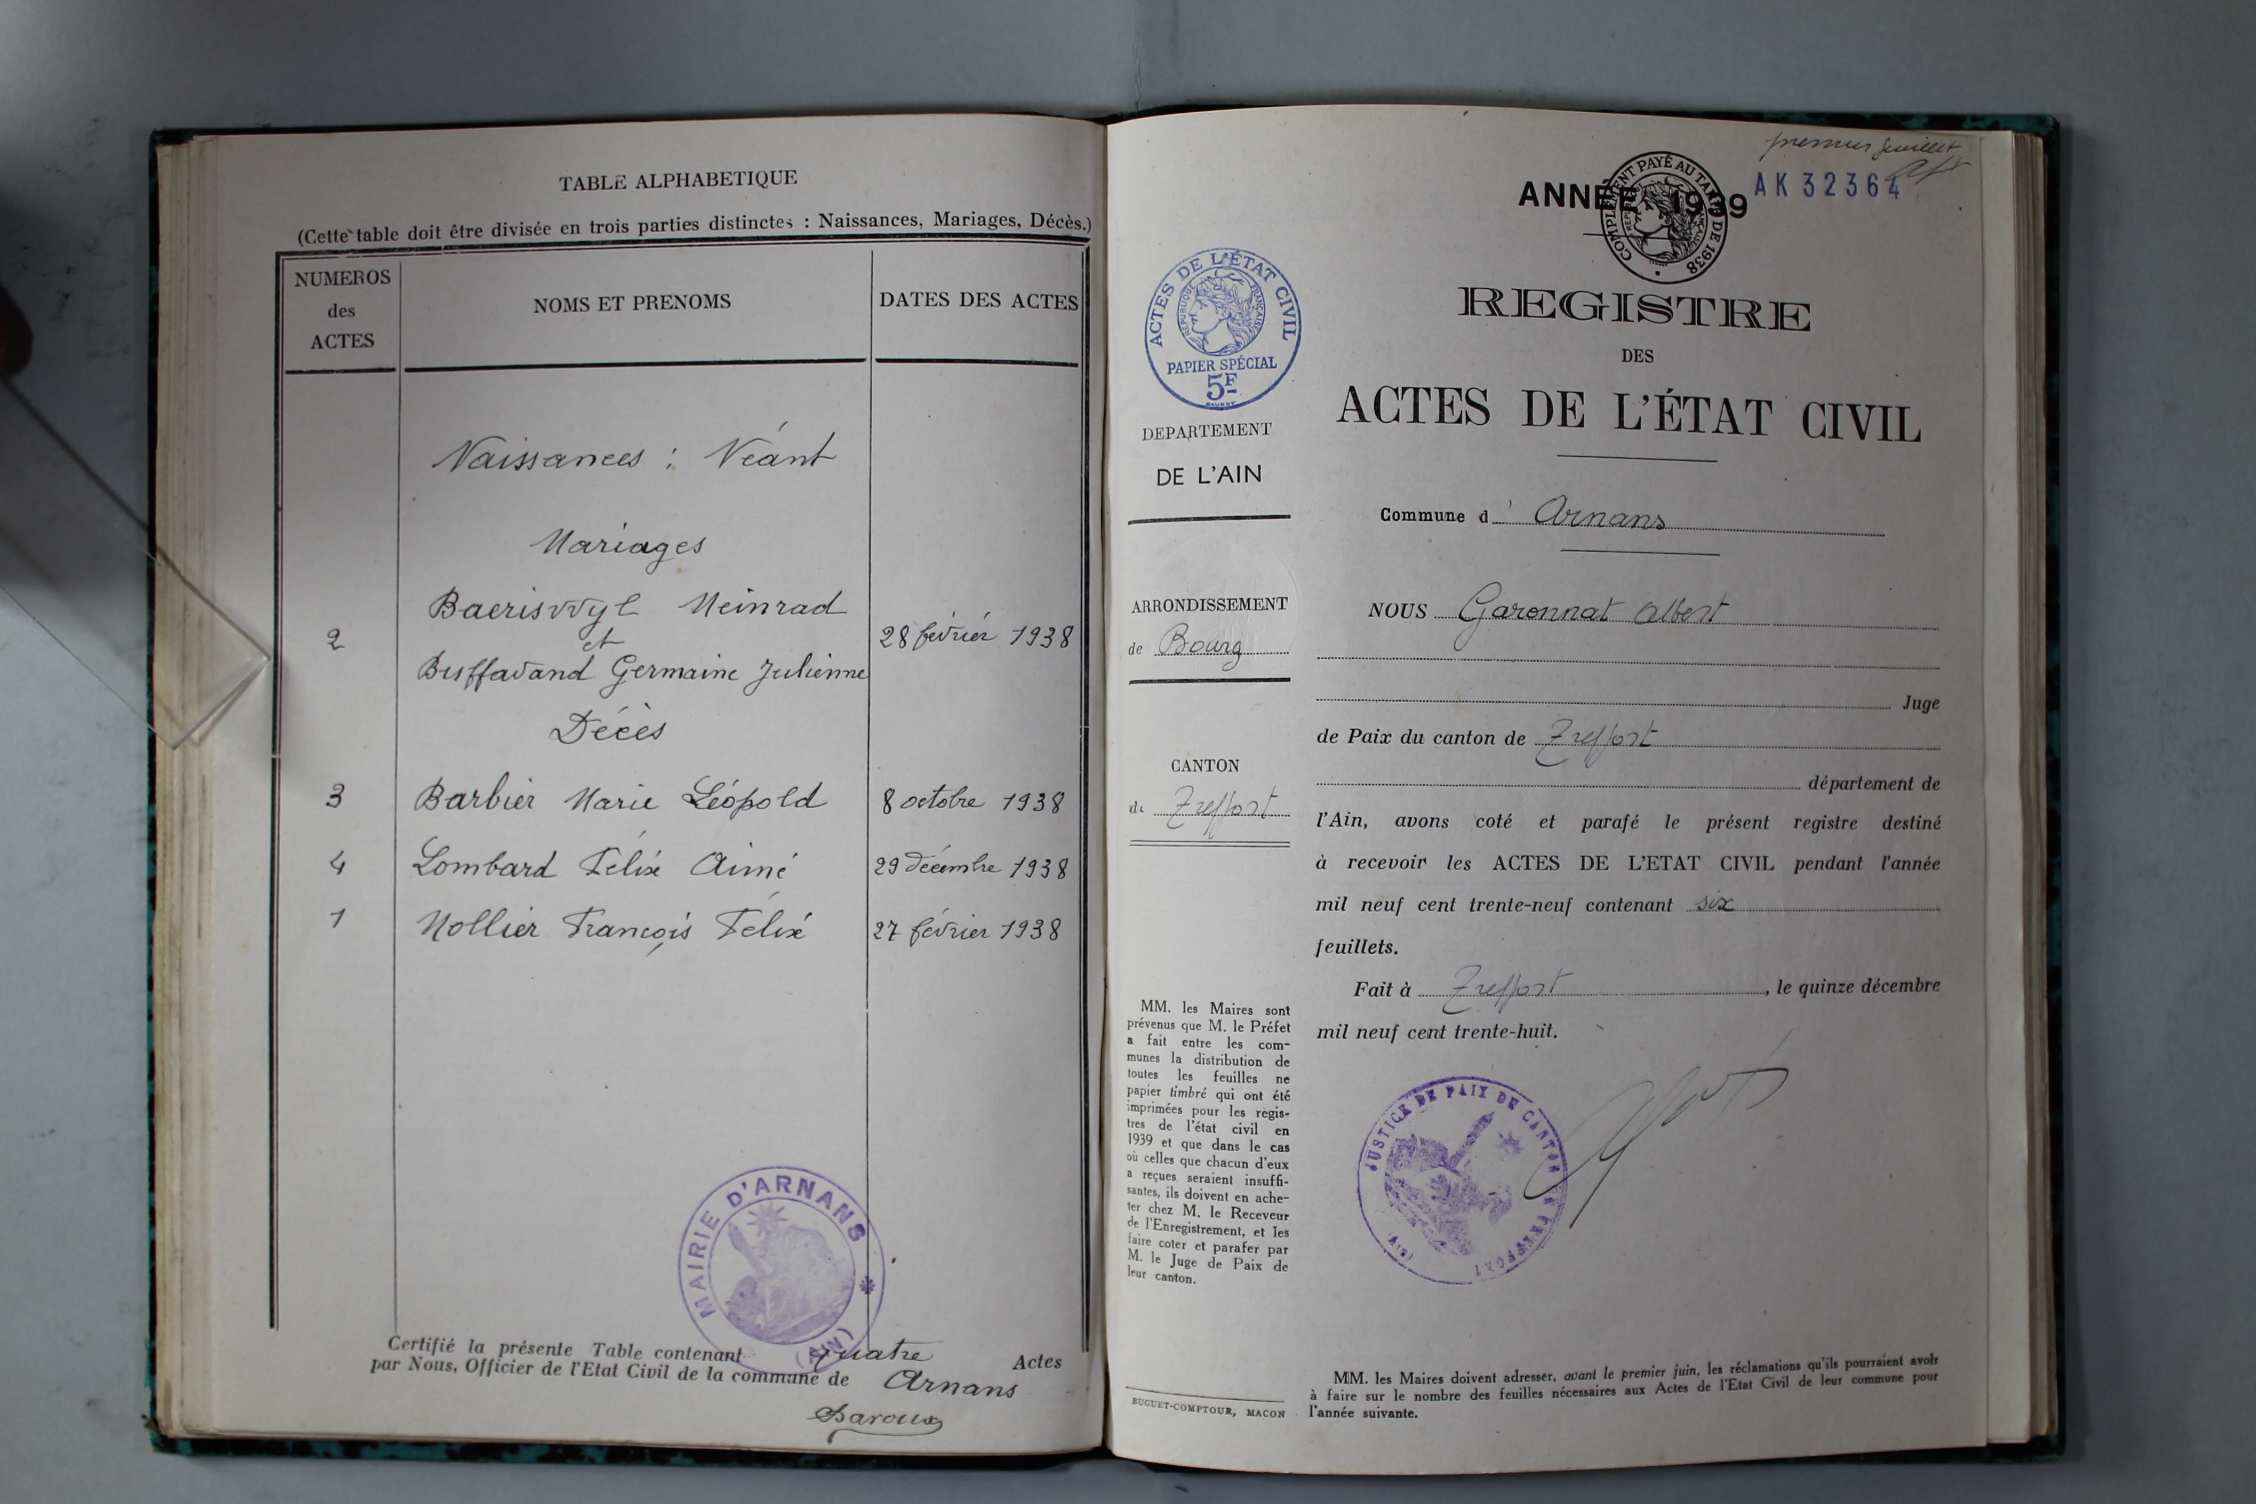 TABLE ALPHABETIQUE
(Cette table doit être divisée en trois parties distinctes : Naissances, Mariages, Décès.)
NUMEROS
des
ACTES
NOMS ET PRENOMS
DATES DES ACTES
Naissances : Néant
Mariages
Baeriswyl Meinrad
2 et 28 février 1938
Buffavand Germaine Julienne
Décès
3 Barbier Marie Léopold 8 octobre 1938
4 Lombard Félix Aimé 29 décembre 1938
1 Mollier François Félix 27 février 1938
MAIRIE D'ARNANS
(AIN)
Certifié la présente Table contenant quatre Actes
par Nous, Officier de l'Etat Civil de la commune de Arnans
premier feuillet
ANNÉE 1939
COMPLÉMENT PAYÉ AU TARIF DE 1938
AK 32364
ACTES DE L'ÉTAT CIVIL
RÉPUBLIQUE FRANÇAISE
PAPIER SPÉCIAL
5F
DEPARTEMENT
DE L'AIN
ARRONDISSEMENT
de Bourg
CANTON
de Treffort
MM. les Maires sont
prévenus que M. le Préfet
a fait entre les com-
munes la distribution de
toutes les feuilles ne
papier timbré qui ont été
imprimées pour les regis-
tres de l'état civil en
1939 et que dans le cas
où celles que chacun d'eux
a reçues seraient insuffi-
santes, ils doivent en ache-
ter chez M. le Receveur
de l'Enregistrement, et les
faire coter et parafer par
M. le Juge de Paix de
leur canton.
BUGUET-COMPTOUR, MACON
REGISTRE
DES
ACTES DE L'ÉTAT CIVIL
Commune d' Arnans
NOUS Garonnat Albert
Juge
de Paix du canton de Treffort
département de
l'Ain, avons coté et parafé le présent registre destiné
à recevoir les ACTES DE L'ETAT CIVIL pendant l'année
mil neuf cent trente-neuf contenant six
feuillets.
Fait à Treffort, le quinze décembre
mil neuf cent trente-huit.
JUSTICE DE PAIX DU CANTON DE TREFFORT
(AIN)
MM. les Maires doivent adresser, avant le premier juin, les réclamations qu'ils pourraient avoir
à faire sur le nombre des feuilles nécessaires aux Actes de l'Etat Civil de leur commune pour
l'année suivante.